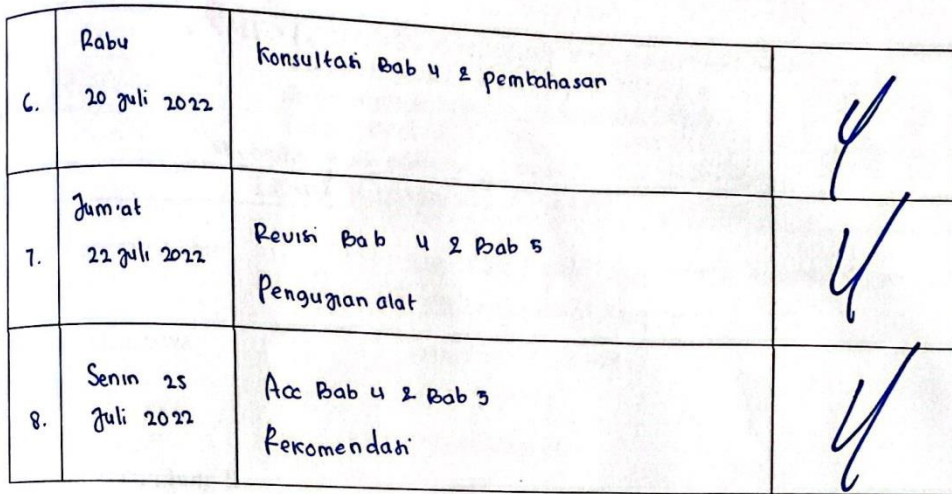 6.
Rabu
20 Juli 2022
Konsultasi Bab 4 & pembahasan
7.
Jum'at
22 Juli 2022
Revisi Bab 4 & Bab 5
Pengujian alat
8.
Senin 25
Juli 2022
Acc Bab 4 & Bab 5
Rekomendasi